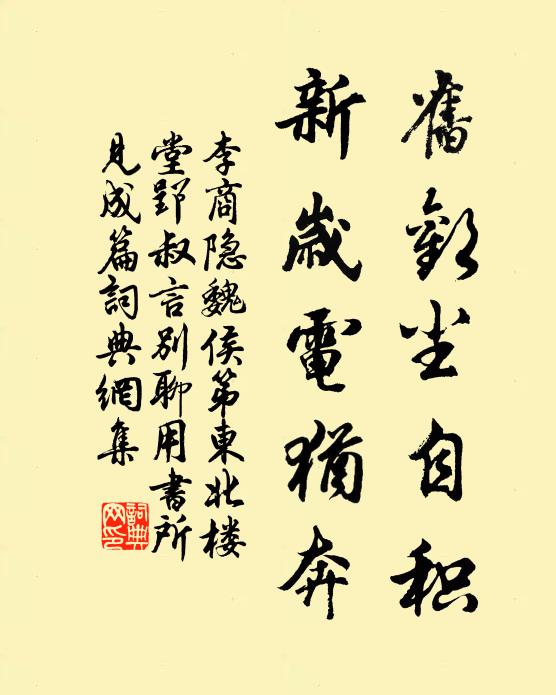 舊歡尘自积
新歲電猶奔
李商隐魏侯第東北楼
堂郢叔言别聊用書所
見成篇詞典網集
詞典
网印